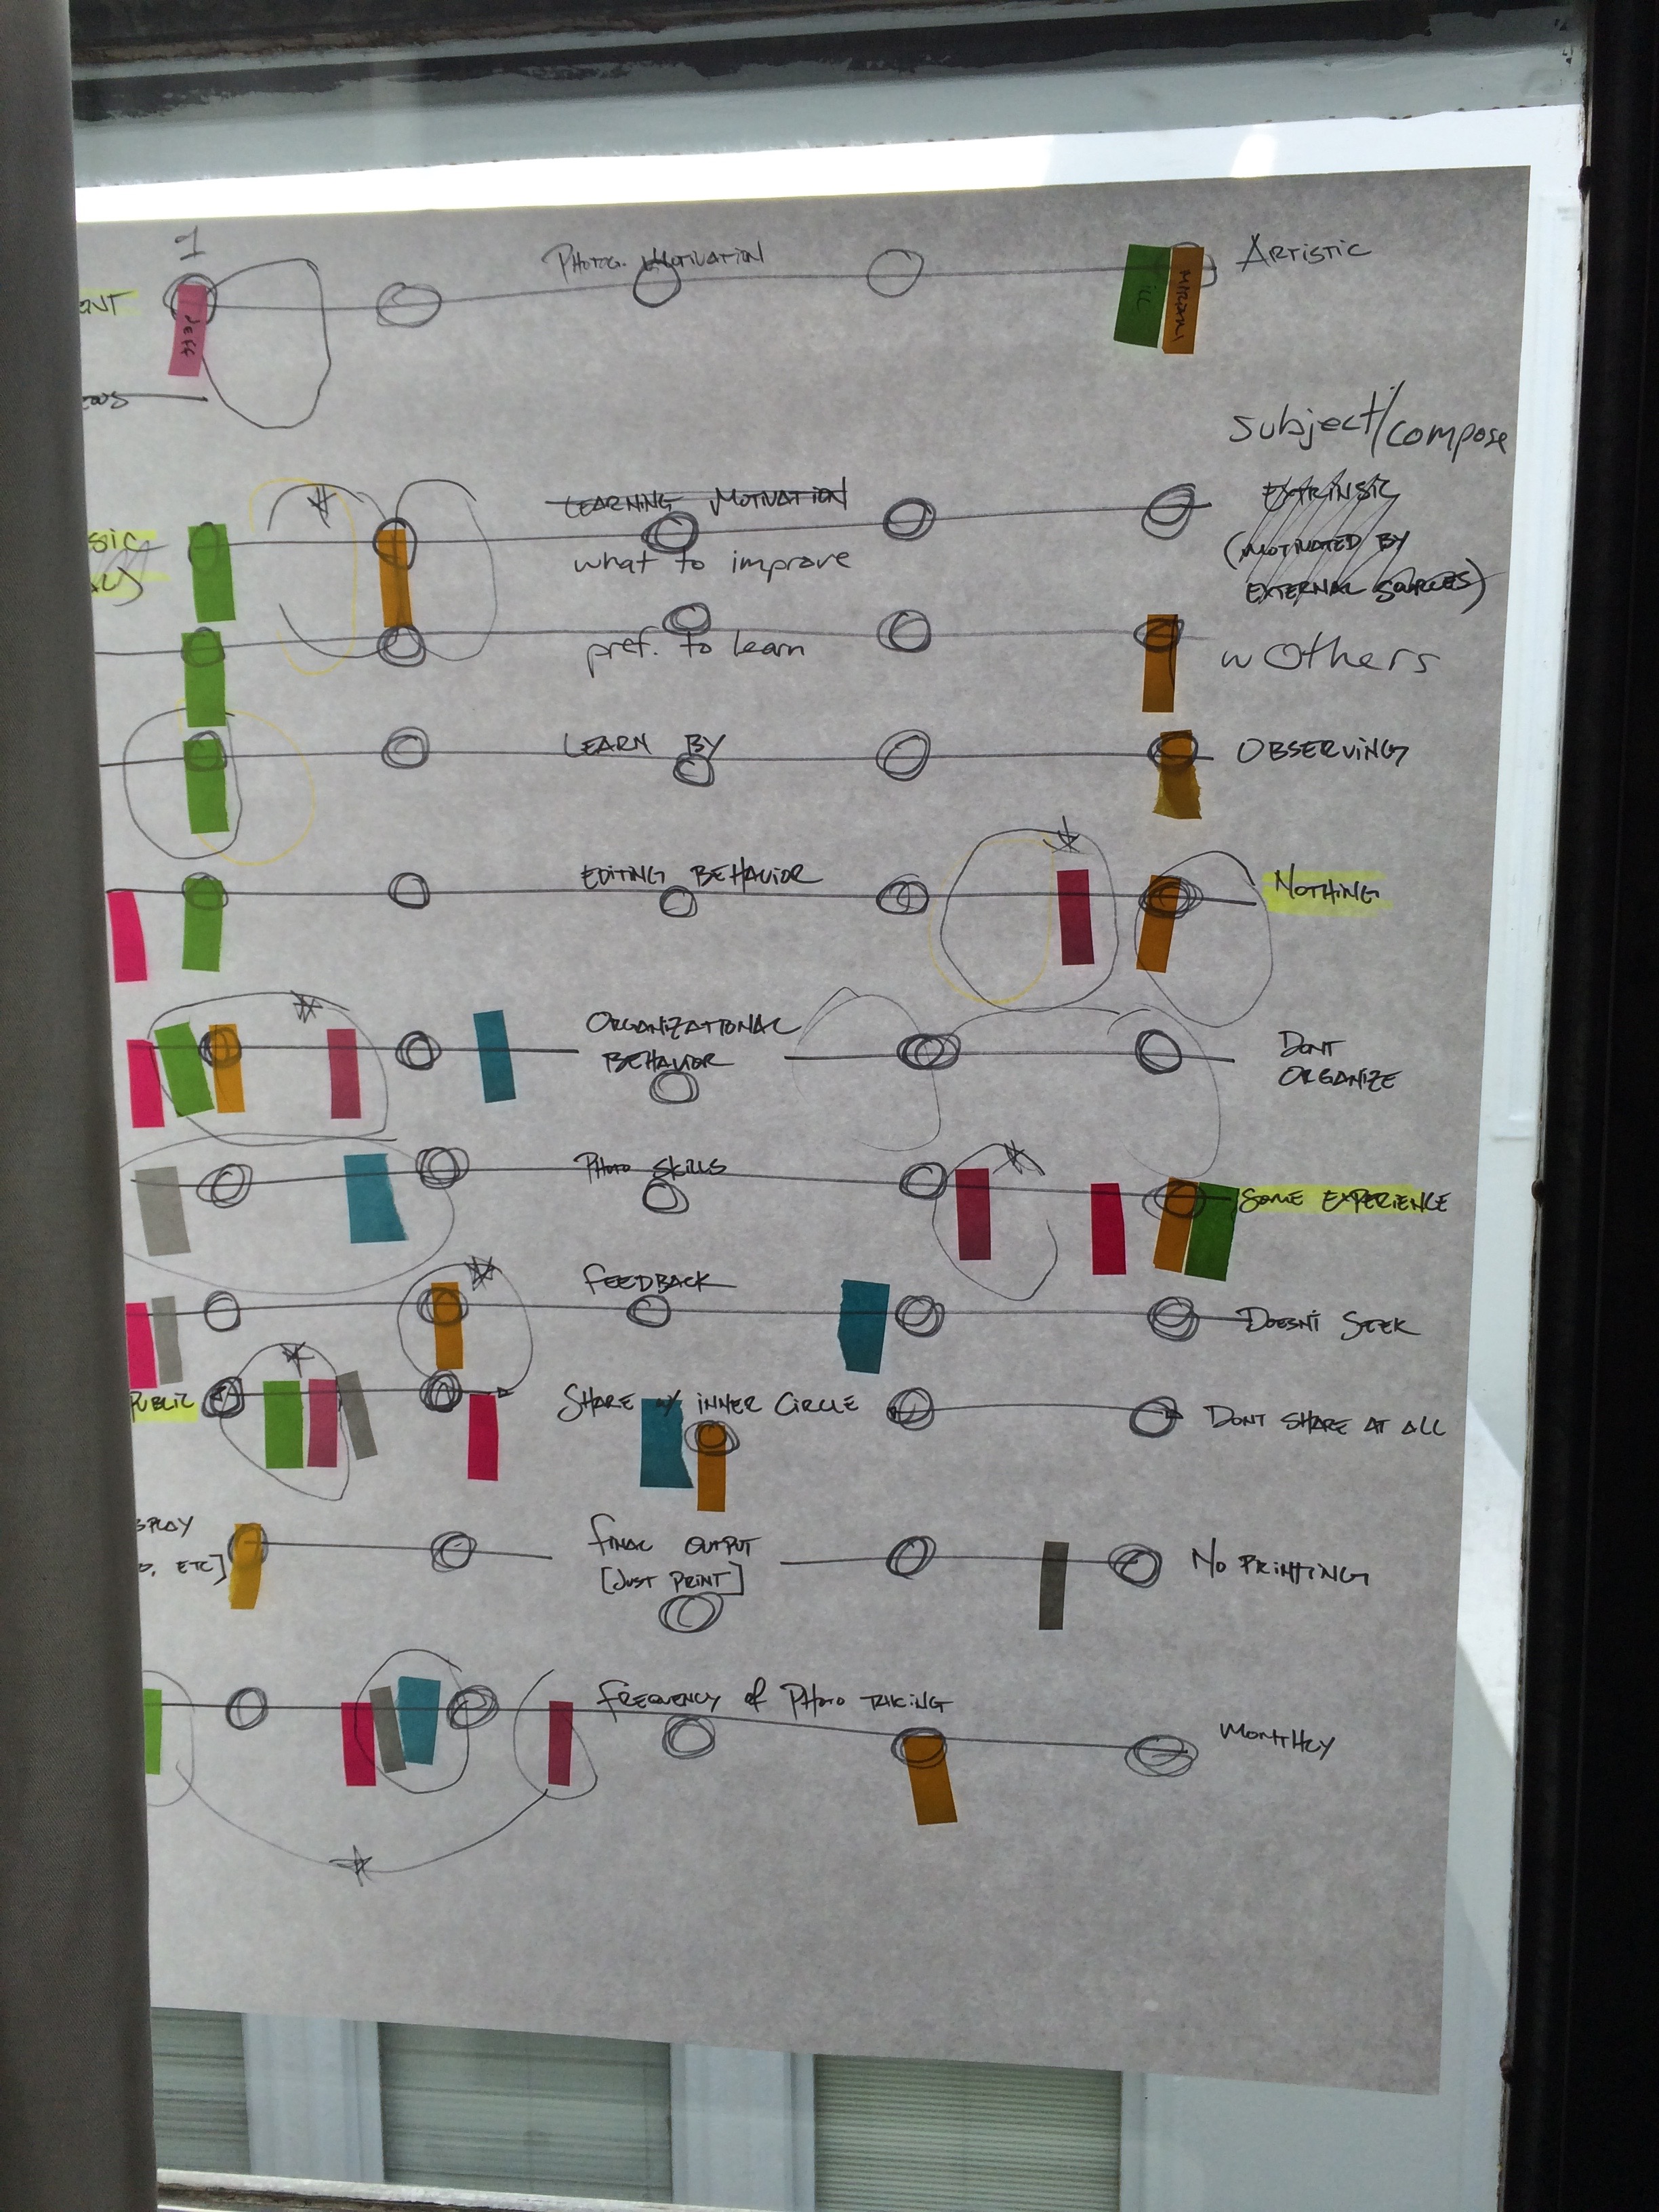 1
PHOTOG. MOTIVATION
ARTISTIC
Jeff
MIRIAM
subject/compose
LEARNING MOTIVATION
EXTRINSIC
what to improve
(MOTIVATED BY
EXTERNAL SOURCES)
pref. to learn
w Others
LEARN BY
OBSERVING
EDITING BEHAVIOR
NOTHING
ORGANIZATIONAL
BEHAVIOR
DONT
ORGANIZE
PHOTO SKILLS
SOME EXPERIENCE
FEEDBACK
DOESN'T SEEK
PUBLIC
SHARE W/ INNER CIRCLE
DONT SHARE AT ALL
FINAL OUTPUT
ETC]
[JUST PRINT]
NO PRINTING
FREQUENCY of PHOTO TAKING
MONTHLY